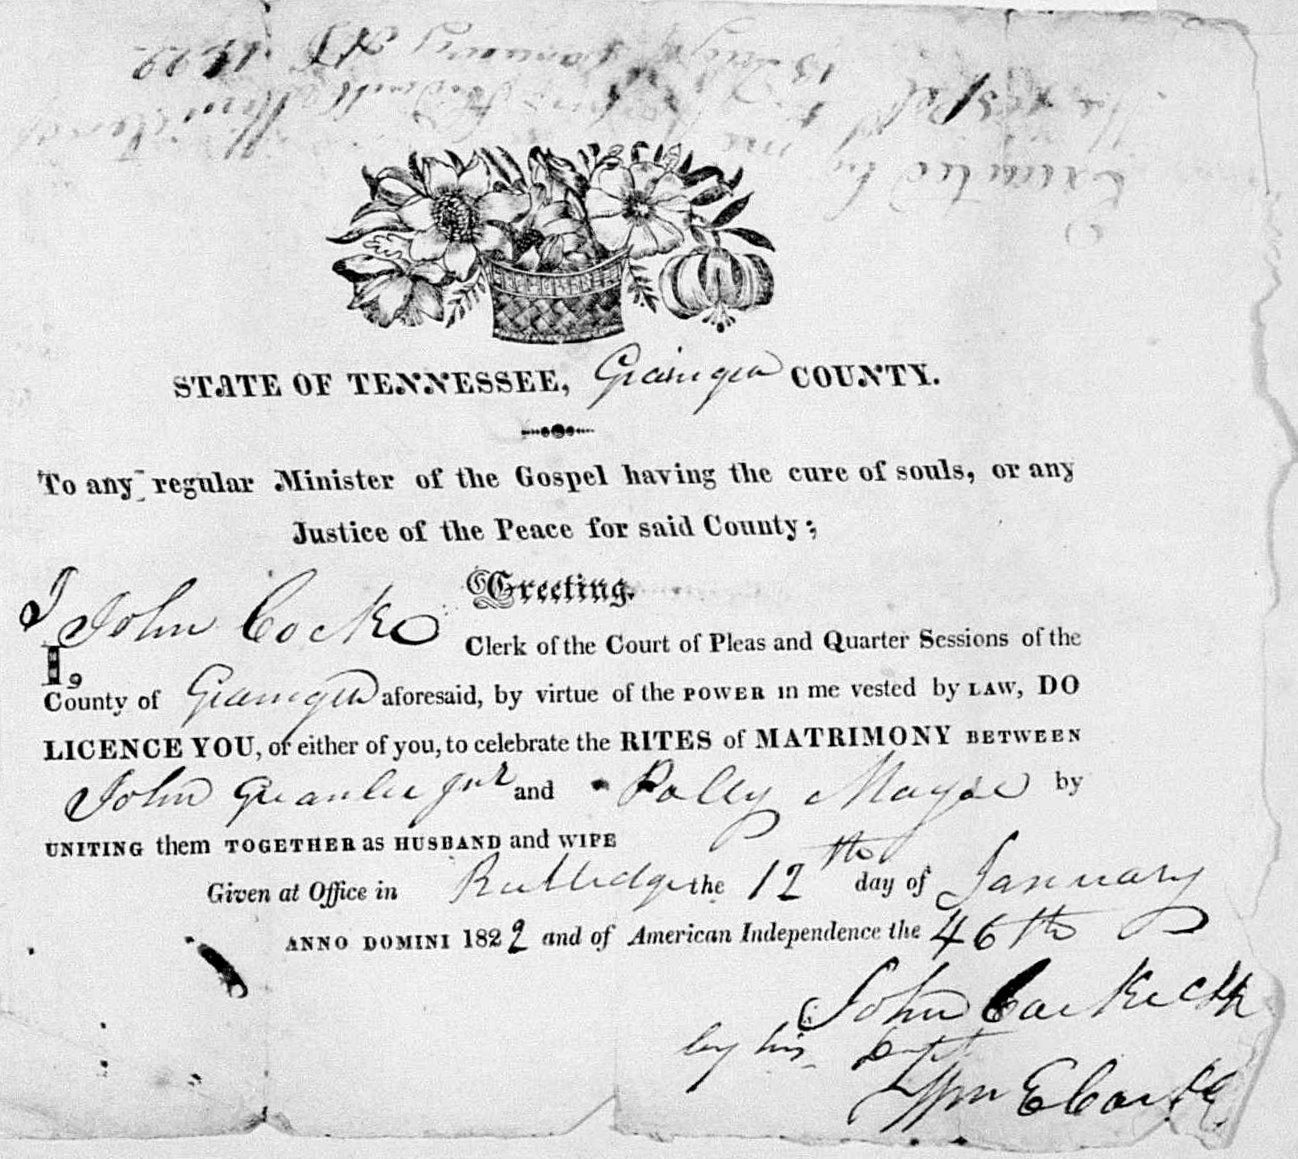 Executed by me
13 day of January AD 1822
STATE OF TENNESSEE, Grainger COUNTY.
To any regular Minister of the Gospel having the cure of souls, or any
Justice of the Peace for said County;
Greeting.
I John Cocke
I, Clerk of the Court of Pleas and Quarter Sessions of the
County of Grainger aforesaid, by virtue of the POWER in me vested by LAW, DO
LICENCE YOU, or either of you, to celebrate the RITES of MATRIMONY BETWEEN
John Grantee Jnr and Polly Mayse by
UNITING them TOGETHER as HUSBAND and WIFE
Given at Office in Rutledge the 12th day of January
ANNO DOMINI 1822 and of American Independence the 46th
John Cocke Clk
by his Dept
Wm E Cocke